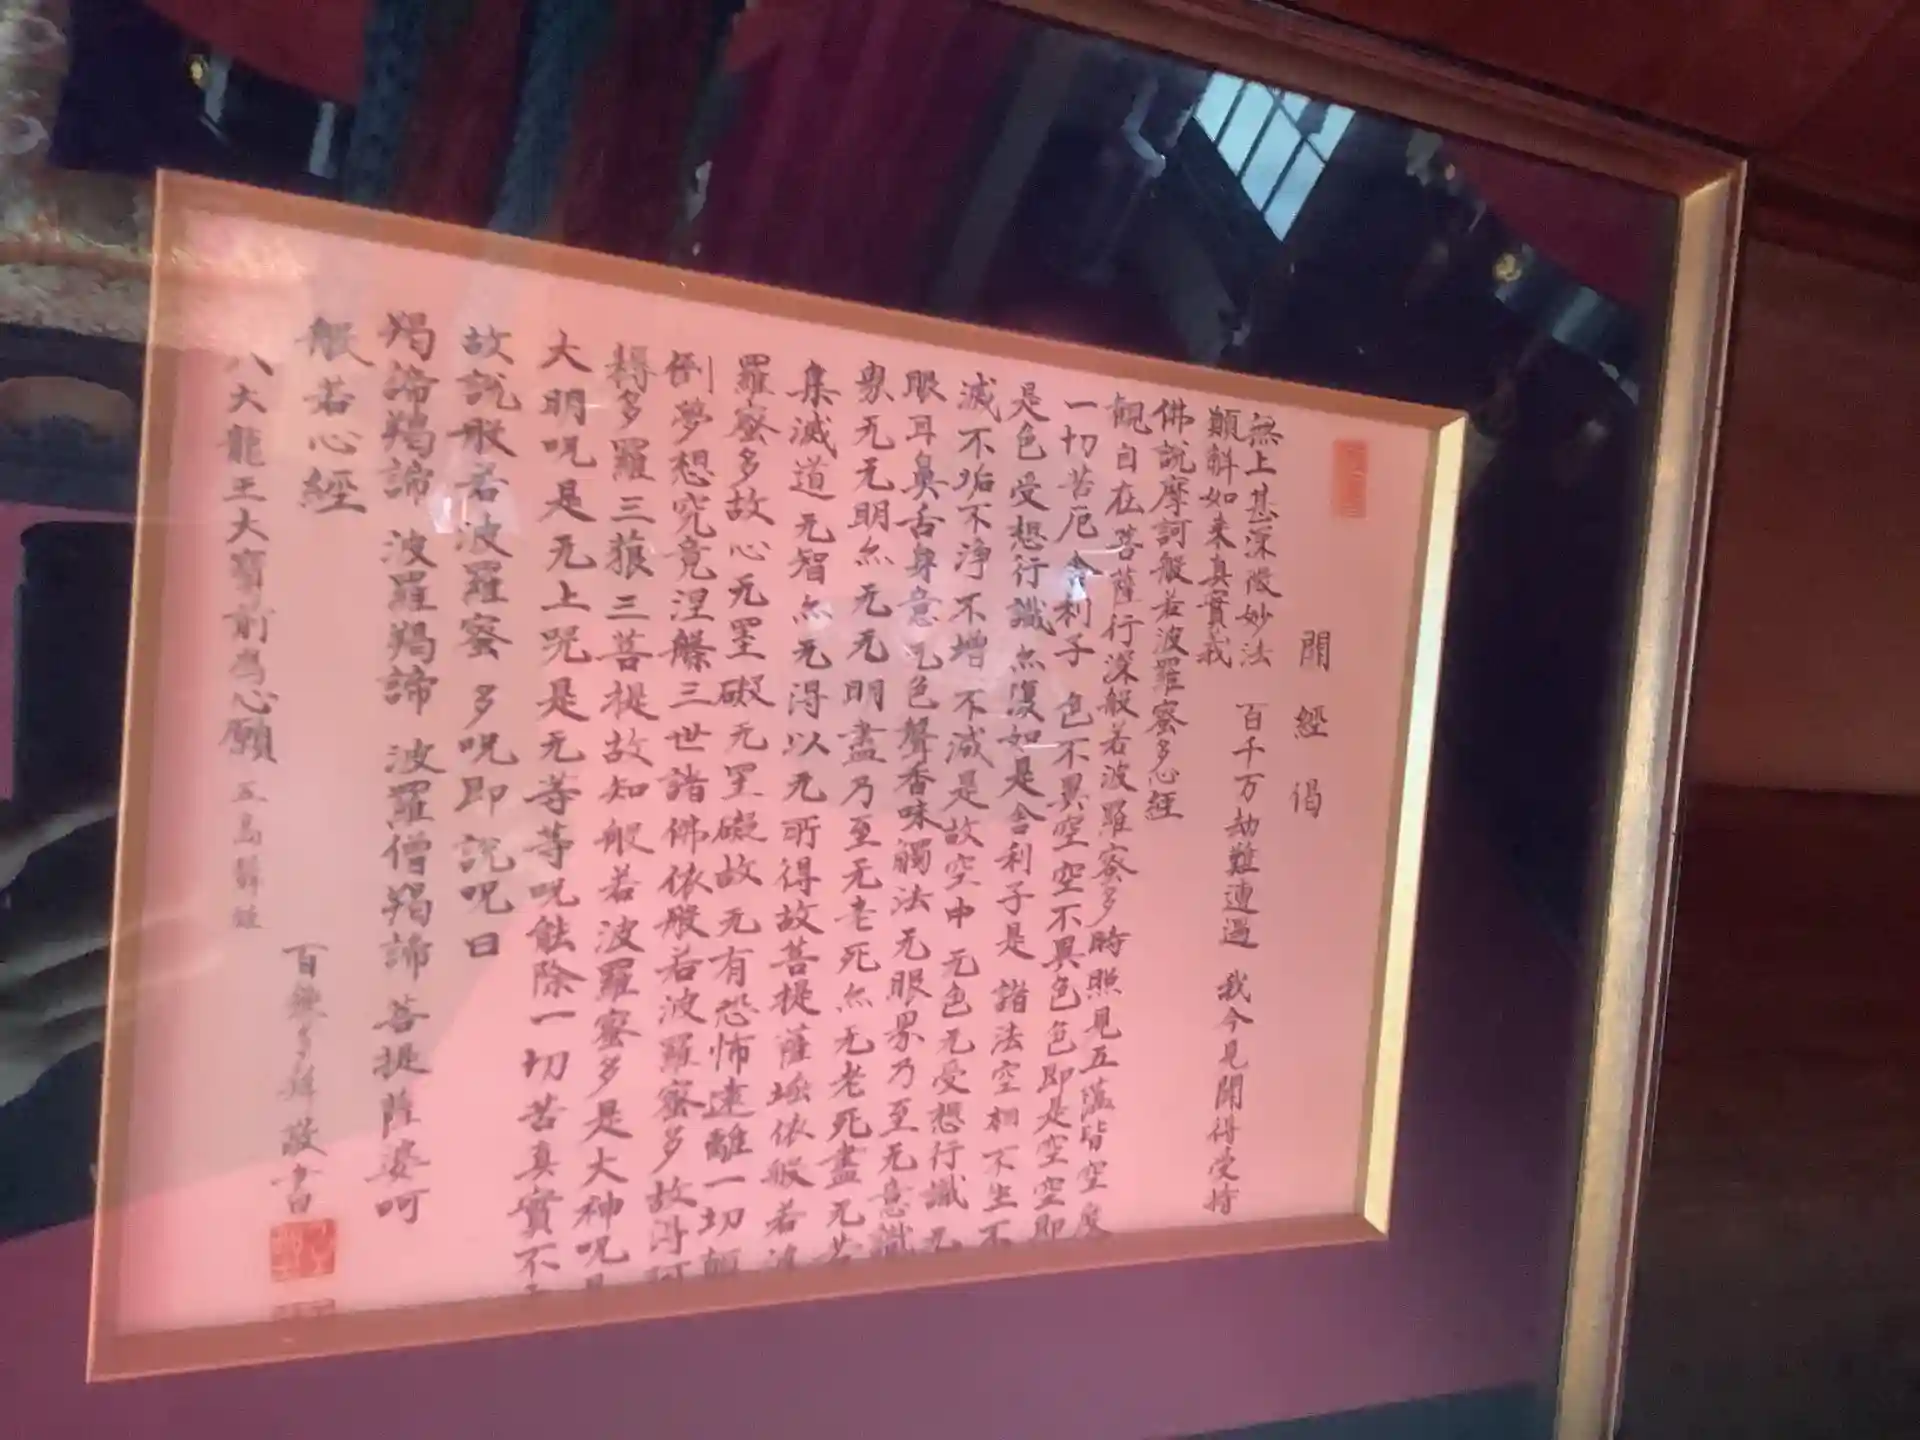 開經偈
無上甚深微妙法 百千万劫難遭遇 我今見聞得受持
願解如来真實義
佛説摩訶般若波羅蜜多心経
観自在菩薩行深般若波羅蜜多時照見五蘊皆空度
一切苦厄舎利子 色不異空空不異色色即是空空即
是色受想行識亦復如是舎利子是諸法空相不生不
滅不垢不浄不増不減是故空中无色无受想行識无
眼耳鼻舌身意无色聲香味觸法无眼界乃至无意識
界无无明亦无无明盡乃至无老死亦无老死盡无苦
集滅道无智亦无得以无所得故菩提薩埵依般若波
羅蜜多故心无罣礙无罣礙故无有恐怖遠離一切顛
倒夢想究竟涅槃三世諸佛依般若波羅蜜多故得阿
耨多羅三藐三菩提故知般若波羅蜜多是大神呪是
大明呪是无上呪是无等等呪能除一切苦真實不
故説般若波羅蜜多呪即説呪曰
羯諦羯諦 波羅羯諦 波羅僧羯諦 菩提薩婆呵
般若心經
八大龍王大寳前為心願
百 敬書